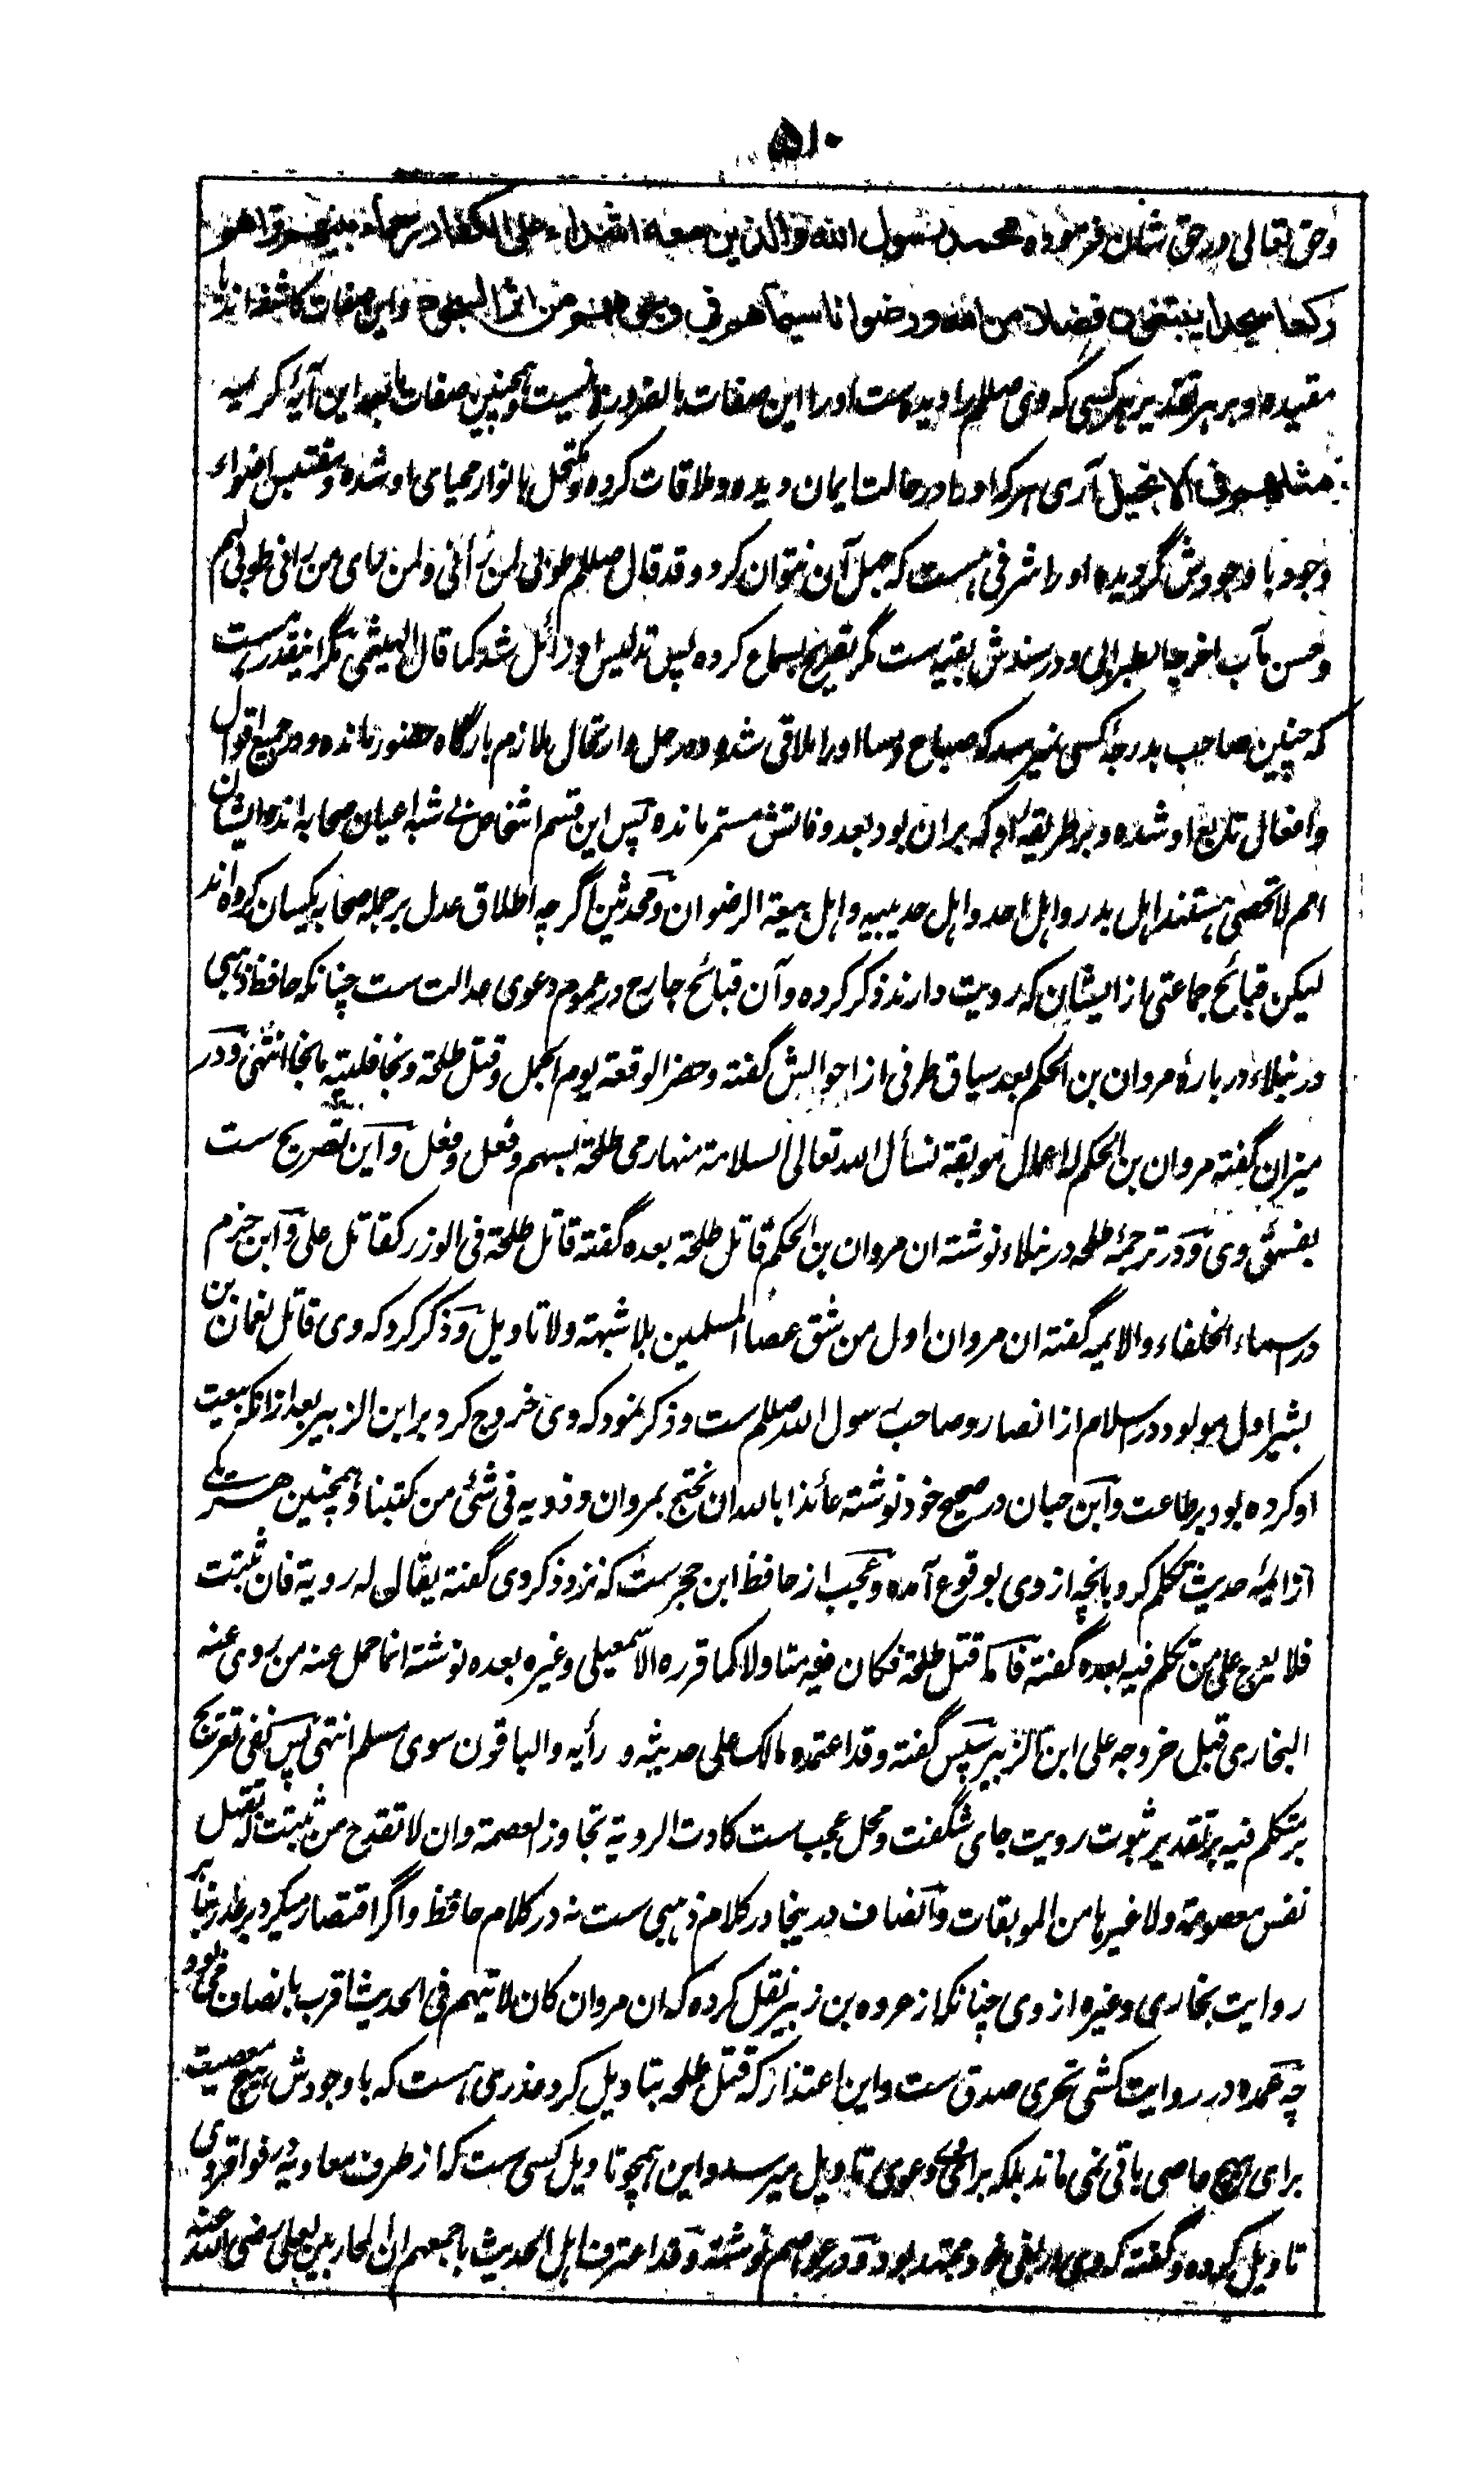 ۵۱۰
وحق تعالی در حق شان فرموده محمد رسول الله والذین معه اشداء علی الکفار رحماء بینهم تراهم
رکعا سجدا یبتغون فضلا من الله ورضوانا سیماهم فی وجوههم من اثر السجود واین صفات کاشفه اند یا
مقیده وبر هر تقدیر هر کسی که وی صلعم را دیده است او را این صفات بالضرورة نیست وهمچنین صفات بعد این آیه کریمه
مثلهم فی الانجیل آری هر که او را در حالت ایمان دیده وملاقات کرده ومکتحل بانوار محیای او شده ومقتبس اضواء
وجود با وجودش گردیده او را شرفی هست که جهل آن نتوان کرد وقد قال صلعم طوبی لمن رآنی ولمن رای من رآنی طوبی لهم
وحسن مآب اخرجه الطبرانی ودر سندش بقیه ست مگر تصریح بسماع کرده پس تدلیس او زائل شد کما قال الهیثمی مگر اینقدر ست
که چنین صاحب بدرجه کسی نمیرسد که صباح ومسا او را ملاقی شده ودر حل وارتحال ملازم بارگاه حضور مانده ودر جمیع اقوال
وافعال تابع او شده وبر طریقه او که بران بود بعد وفاتش مستمر مانده پس این قسم اشخاص بی شبه اعیان صحابه اند وایشان
امم لا تحصی هستند اهل بدر واهل احد واهل حدیبیه واهل بیعة الرضوان ومحدثین اگرچه اطلاق عدل بر جمله صحابه یکسان کرده اند
لیکن قبائح جماعتی از ایشان که رویت دارند ذکر کرده وآن قبائح جارح در عموم دعوی عدالت ست چنانکه حافظ ذهبی
در نبلاء درباره مروان بن الحکم بعد سیاق طرفی از احوالش گفته وحضر الوقعة یوم الجمل وقتل طلحة ونجا فلیته ما نجا انتهی ودر
میزان گفته مروان بن الحکم له اعمال موبقة نسأل الله تعالی السلامة منها رمی طلحة بسهم وفعل وفعل واین تصریح ست
بفسق وی ودر ترجمه طلحه در نبلاء نوشته ان مروان بن الحکم قاتل طلحة بعده گفته قاتل طلحة فی الوزر کقاتل علی وابن حزم
در اسماء الخلفاء والایمه گفته ان مروان اول من شق عصا المسلمین بلا شبهة ولا تاویل وذکر کرد که وی قاتل نعمان بن
بشیر اول مولود در اسلام از انصار وصاحب رسول الله صلعم ست وذکر نمود که وی خروج کرد بر ابن الزبیر بعد ازانکه بیعت
او کرده بود بر طاعت وابن حبان در صحیح خود نوشته عائذا بالله ان نحتج بمروان وذویه فی شئ من کتبنا وهمچنین هر یکی
از ایمه حدیث تکلم کرد بانچه از وی بوقوع آمده وعجب از حافظ ابن حجر ست که نزد ذکر وی گفته یقال له رویة فان ثبتت
فلا یعرج علی من تکلم فیه بعده گفته فاما قتل طلحة فکان فیه متاولا کما قرره الاسمعیلی وغیره بعده نوشته انما حمل عنه من روی عنه
البخاری قبل خروجه علی ابن الزبیر سپس گفته وقد اعتمد مالک علی حدیثه ورأیه والباقون سوی مسلم انتهی پس نفی تعریج
بر متکلم فیه بر تقدیر ثبوت رویت جای شگفت ومحل عجب ست کادت الرویة تجاوز العصمة وان لا تقدح من ثبتت له بقتل
نفس معصومة ولا غیرها من الموبقات وانصاف درینجا در کلام ذهبی ست نه در کلام حافظ واگر اقتصار میکرد بر عذر بنا بر
روایت بخاری وغیره از وی چنانکه از عروه بن زبیر نقل کرده که ان مروان کان لا یتهم فی الحدیث اقرب بانصاف می بود
چه عمده در روایت کشی تحری صدق ست واین اعتذار که قتل طلحه بتاویل کرد عذری هست که با وجودش هیچ معصیت
برای هیچ عاصی باقی نمی ماند بلکه برای دعوی تاویل میرسد واین همچو تاویل کسی ست که از طرف معاویه در فواقر وی
تاویل کرده وگفته که وی در بغی خود مجتهد بود ودر عواصم نوشته وقد اعترف اهل الحدیث باجمعهم ان المحاربین لعلی رضی الله عنه